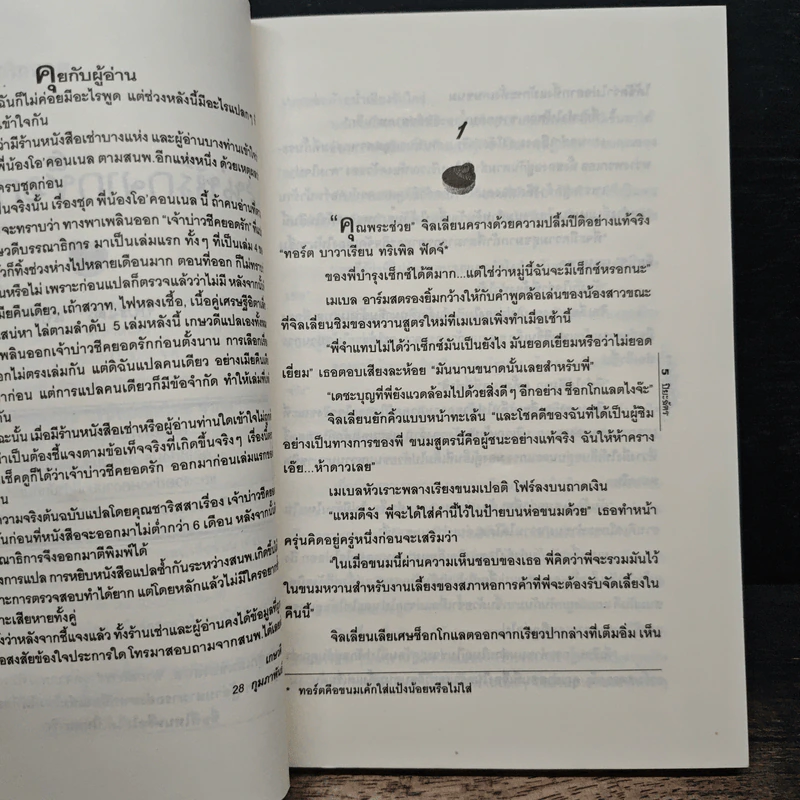 คุยกับผู้อ่าน
ฉันก็ไม่ค่อยมีอะไรพูด แต่ช่วงหลังนี้มีอะไรแปลกๆ
เข้าใจกัน
ว่ามีร้านหนังสือเช่าบางแห่ง และผู้อ่านบางท่านเข้าใจ
พี่น้องโอ'คอนเนล ตามสนพ.อีกแห่งหนึ่ง ด้วยเหตุผล
ครบชุดก่อน
ป็นจริงนั้น เรื่องชุด พี่น้องโอ'คอนเนล นี้ ถ้าคนอ่าน
จะทราบว่า ทางพาเพลินออก "เจ้าบ่าวชีคยอดรัก"
กษวดีบรรณาธิการ มาเป็นเล่มแรก ทั้งๆ ที่เป็นเล่ม 4
ัวก็ทิ้งช่วงห่างไปหลายเดือนมาก ตอนที่ออก ก็ไม่
นหรือไม่ เพราะก่อนแปลก็ตรวจแล้วว่าไม่มี หลังจากนั้น
มียคืนเดียว, เถ้าสวาท, ไฟหลงเชื้อ, เนื้อคู่เศรษฐีอิตาลี
สน่หา ไล่ตามลำดับ 5 เล่มหลังนี้ เกษวดีแปลเองทั้ง
เพลินออกเจ้าบ่าวชีคยอดรักก่อนตั้งนาน การเลือก
อกไม่ตรงเล่มกัน แต่ดิฉันแปลคนเดียว อย่างเมียคืน
าก่อน แต่การแปลคนเดียวก็มีข้อจำกัด ทำให้เล่มที่
กัน
ฉะนั้น เมื่อมีร้านหนังสือเช่าหรือผู้อ่านท่านใดเข้าใจไม่
จำเป็นต้องชี้แจงตามข้อเท็จจริงที่เกิดขึ้นจริงๆ เรื่องนี้
เช็คดูก็ได้ว่าเจ้าบ่าวชีคยอดรัก ออกมาก่อนเล่มแรกของ
น
วามจริงต้นฉบับแปลโดยคุณชาริสสาเรื่อง เจ้าบ่าวชีคยอด
นก่อนที่หนังสือจะออกมาไม่ต่ำกว่า 6 เดือน หลังจากนั้น
ณาธิการจึงออกมาตีพิมพ์ได้
งการแปล การหยิบหนังสือแปลซ้ำกันระหว่างสนพ.เกิดขึ้น
าะการตรวจสอบทำได้ยาก แต่โดยหลักแล้วไม่มีใครอยาก
าะเสียหายทั้งคู่
งว่าหลังจากชี้แจงแล้ว ทั้งร้านเช่าและผู้อ่านคงได้ข้อมูล
อสงสัยข้องใจประการใด โทรมาสอบถามจากสนพ.ได้เลย
เกษวดี
28 กุมภาพันธ์
1
"คุณพระช่วย" จิลเลี่ยนครางด้วยความปลื้มปีติอย่างแท้จริง
"ทอร์ต บาวาเรียน ทริเพิล ฟัดจ์*
ของพี่บำรุงเซ็กซ์ได้ดีมาก...แต่ใช่ว่าหมู่นี้ฉันจะมีเซ็กซ์หรอกนะ"
เมเบล อาร์มสตรองยิ้มกว้างให้กับคำพูดล้อเล่นของน้องสาวขณะ
ที่จิลเลี่ยนชิมของหวานสูตรใหม่ที่เมเบลเพิ่งทำเมื่อเช้านี้
"พี่จำแทบไม่ได้ว่าเซ็กซ์มันเป็นยังไง มันยอดเยี่ยมหรือว่าไม่ยอด
เยี่ยม" เธอตอบเสียงละห้อย "มันนานขนาดนั้นเลยสำหรับพี่"
"เดชะบุญที่พี่ยังแวดล้อมไปด้วยสิ่งดีๆ อีกอย่าง ช็อกโกแลตไงจ๊ะ"
จิลเลี่ยนยักคิ้วแบบหน้าทะเล้น "และโชคดีของฉันที่ได้เป็นผู้ชิม
อย่างเป็นทางการของพี่ ขนมสูตรนี้คือผู้ชนะอย่างแท้จริง ฉันให้ห้าคราง
เอ๊ย...ห้าดาวเลย"
เมเบลหัวเราะพลางเรียงขนมเปอติ โฟร์ลงบนถาดเงิน
"แหมดีจัง พี่จะได้ใส่คำนี้ไว้ในป้ายบนห่อขนมด้วย" เธอทำหน้า
ครุ่นคิดอยู่ครู่หนึ่งก่อนจะเสริมว่า
"ในเมื่อขนมนี้ผ่านความเห็นชอบของเธอ พี่คิดว่าพี่จะรวมมันไว้
ในขนมหวานสำหรับงานเลี้ยงของสภาหอการค้าที่พี่จะต้องรับจัดเลี้ยงใน
คืนนี้"
จิลเลี่ยนเลียเศษช็อกโกแลตออกจากเรียวปากล่างที่เต็มอิ่ม เห็น
* ทอร์ตคือขนมเค้กใส่แป้งน้อยหรือไม่ใส่
5 ปิยะฉัตร